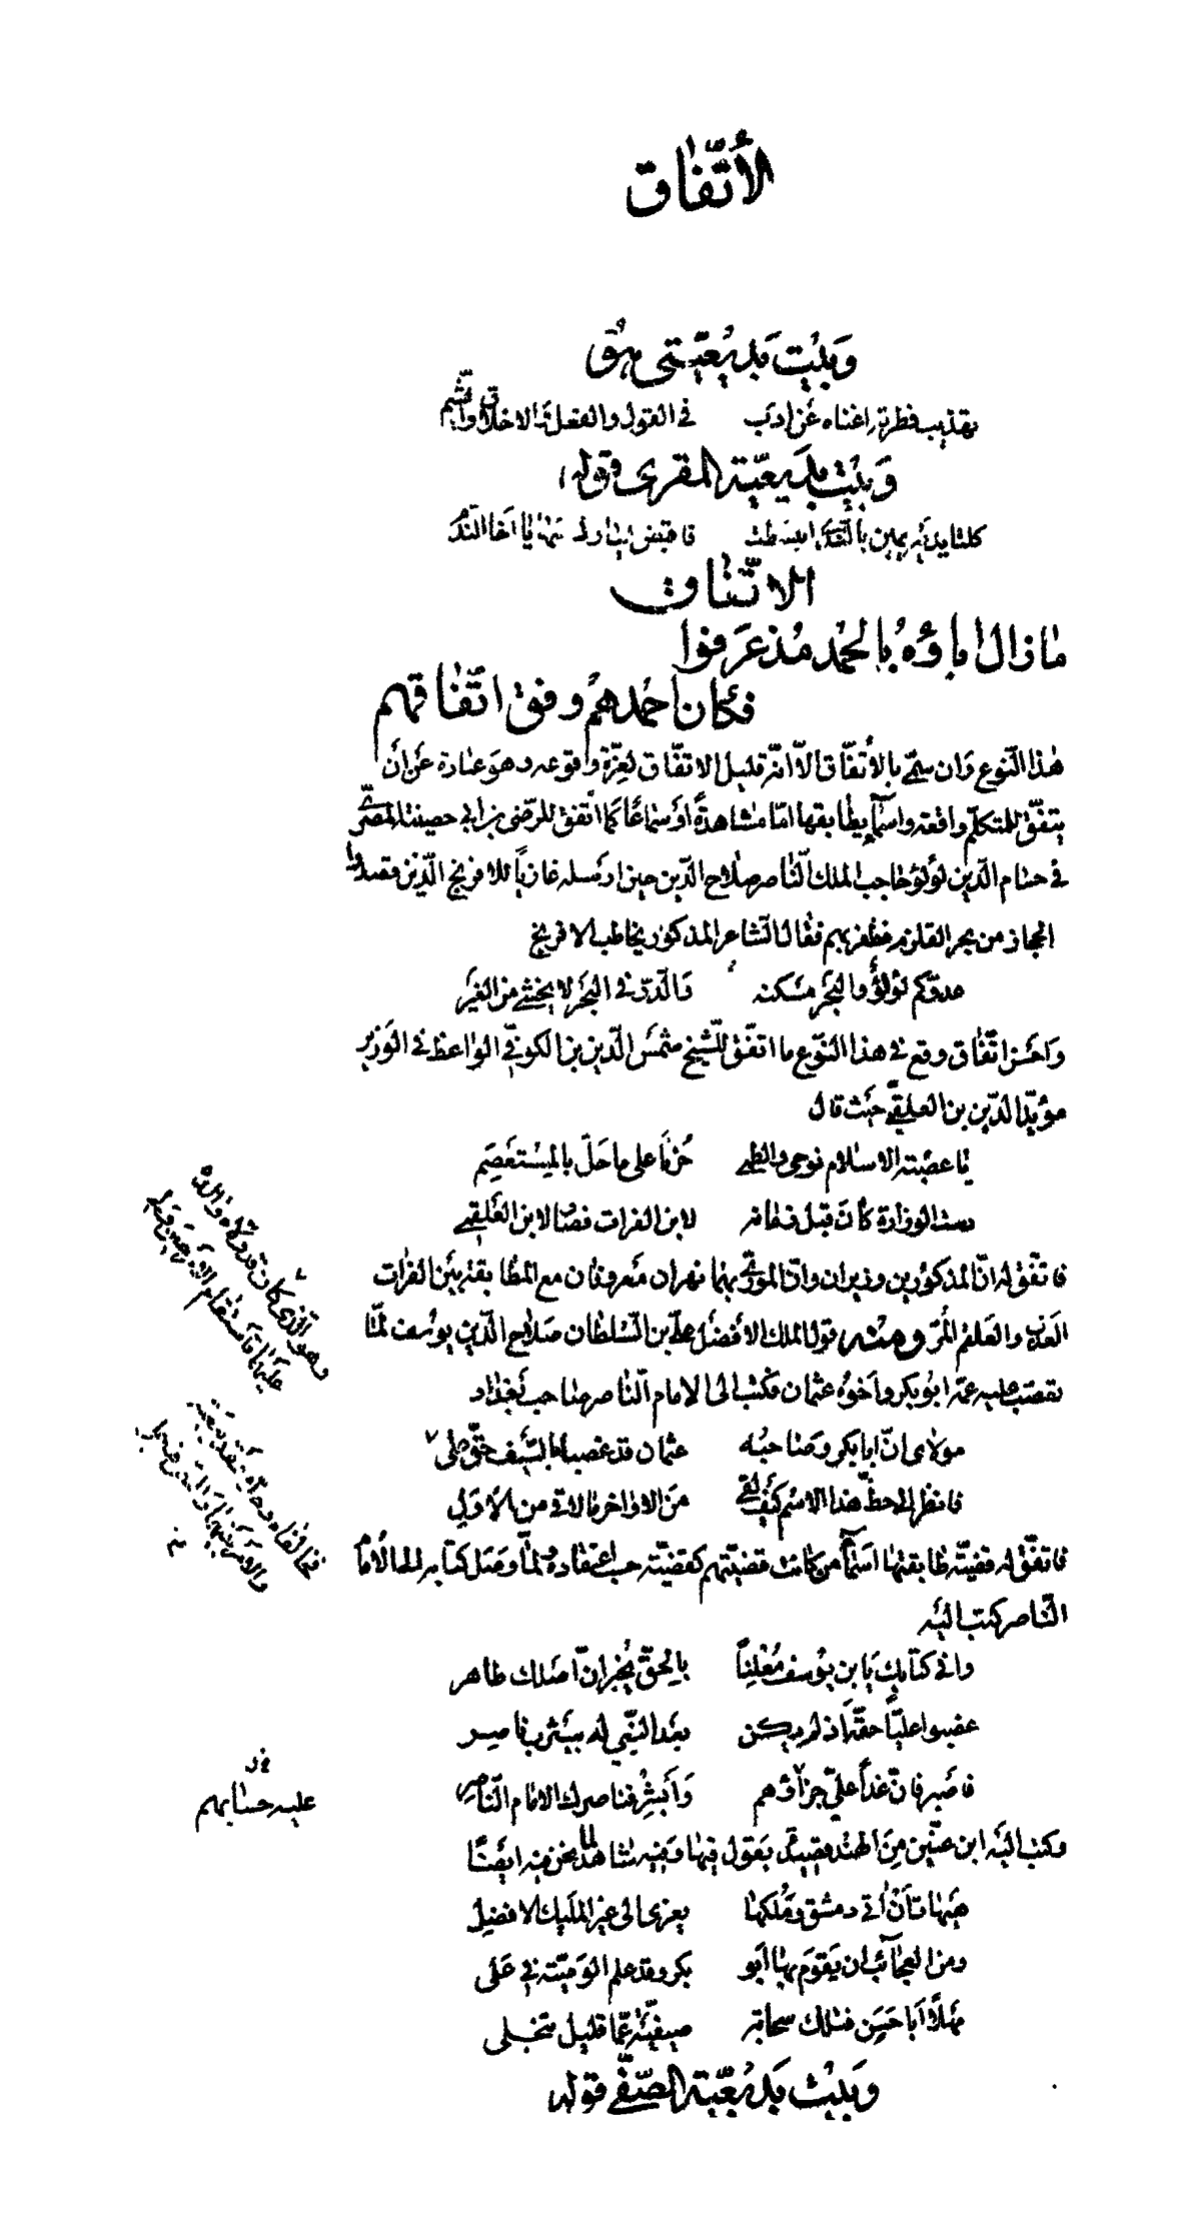 الأتّفاق
وَبَيْت بَديعيّتي هُوَ
تهذيب فطرته اغناه عن ادب في القول والفعل والاخلاق والشيم
وَبَيْت بَديعيّة المقري قوله
كلتا يديه يمين بالندى انبسطت يا اخا الندم
الاتّفاق
مٰازال اٰباؤهُ بالحمْد مُذ عَرَفوا
فكان احمدهم وفق اتّفاقهم
هٰذا النّوع وَان سمّي بالأتفّاق الاّ انّه قليل الاتفّاق لعزّة وقوعه وهو عبارة عن أن
يتفّق للمتكلّم واقعة واسمآء يطابقها امّا مشاهدةً اَوسماعًا كما اتفّق للرّضى بن ابي حصينة المصريّ
في حسام الدّين لؤلؤ حاجب الملك النّاصر صلاح الدّين حين ارسله غازياً للافرنج الّذين قصدوا
الحجاز من بحر القلزم فظفر بهم فقال الشاعر المذكور يخاطب الافرنج
عدوّكم لؤلؤ والبحر مسكنه وَالدّرّ في البحر لا يخشى من الغير
وَاحسن اتّفاق وقع في هذا النّوع ما اتفّق للشّيخ شمس الدّين بن الكوفيّ الواعظ في الوَزير
مؤيّد الدّين بن العلقميّ حيث قال
يٰا عصبة الاسلام نوحي والطمي حُزنًا على ما حلّ بالمستعصم
دست الوزارة كان قبل زمانه لابن الفرات فصار لابن العلقمي
فاتفّق له انّ المذكورين وزيران وانّ المورّى بهما نهران معروفان مع المطابقة بين الفرات
العذب والعلقم المرّ ومنه قول الملك الأفضل عليّ بن السّلطان صلاح الدّين يوسف لمّا
تعصّب عليه عمّه ابو بكر واَخوه عثمان فكتب الى الامام النّاصر صاحب بغداد
مولاي انّ ابا بكر وصاحبه عثمان قد غصبا بالسّيف حقّ علي
فانظر الى حظّ هذا الاسم كيف لقي من الاواخر ما لاقى من الاولِ
فاتفّق له قضيّة طابقتها اسمآء من كانت قضيّتهم كقضيّته حسب اعتقاده ولمّا وصل كتابه الى الأمام
النّاصر كتب اليه
وافى كتابك يا بن يوسف مُعْلناً بالحقّ يُخبر انّ اصلك طاهر
غصبوا عليّاً حقّه اذ لم يكن بعد النبّي له بيثرب ناصر
فاصبر فانّ غداً عليّ جزاؤهم وَاَبشِرْ فناصرك الامام النّاصر
وكتب اليه ابن عنّين من الهند قصيدة يقول فيها وَفيه لما نحن فيه ايضًا
هيهات أن اٰتي دمشق وملكها يعزى الى غير المليك الافضلِ
ومن العجائب ان يقوم بها ابو بكر وقد علم الوصيّة في علي
مهلاً ابا حسن فتلك سحابة صيفيّة عمّا قليل تنجلي
وَبَيْت بَديعيّة الصّفي قوله
علينا فاستقام الأمر
عليه حسابهم